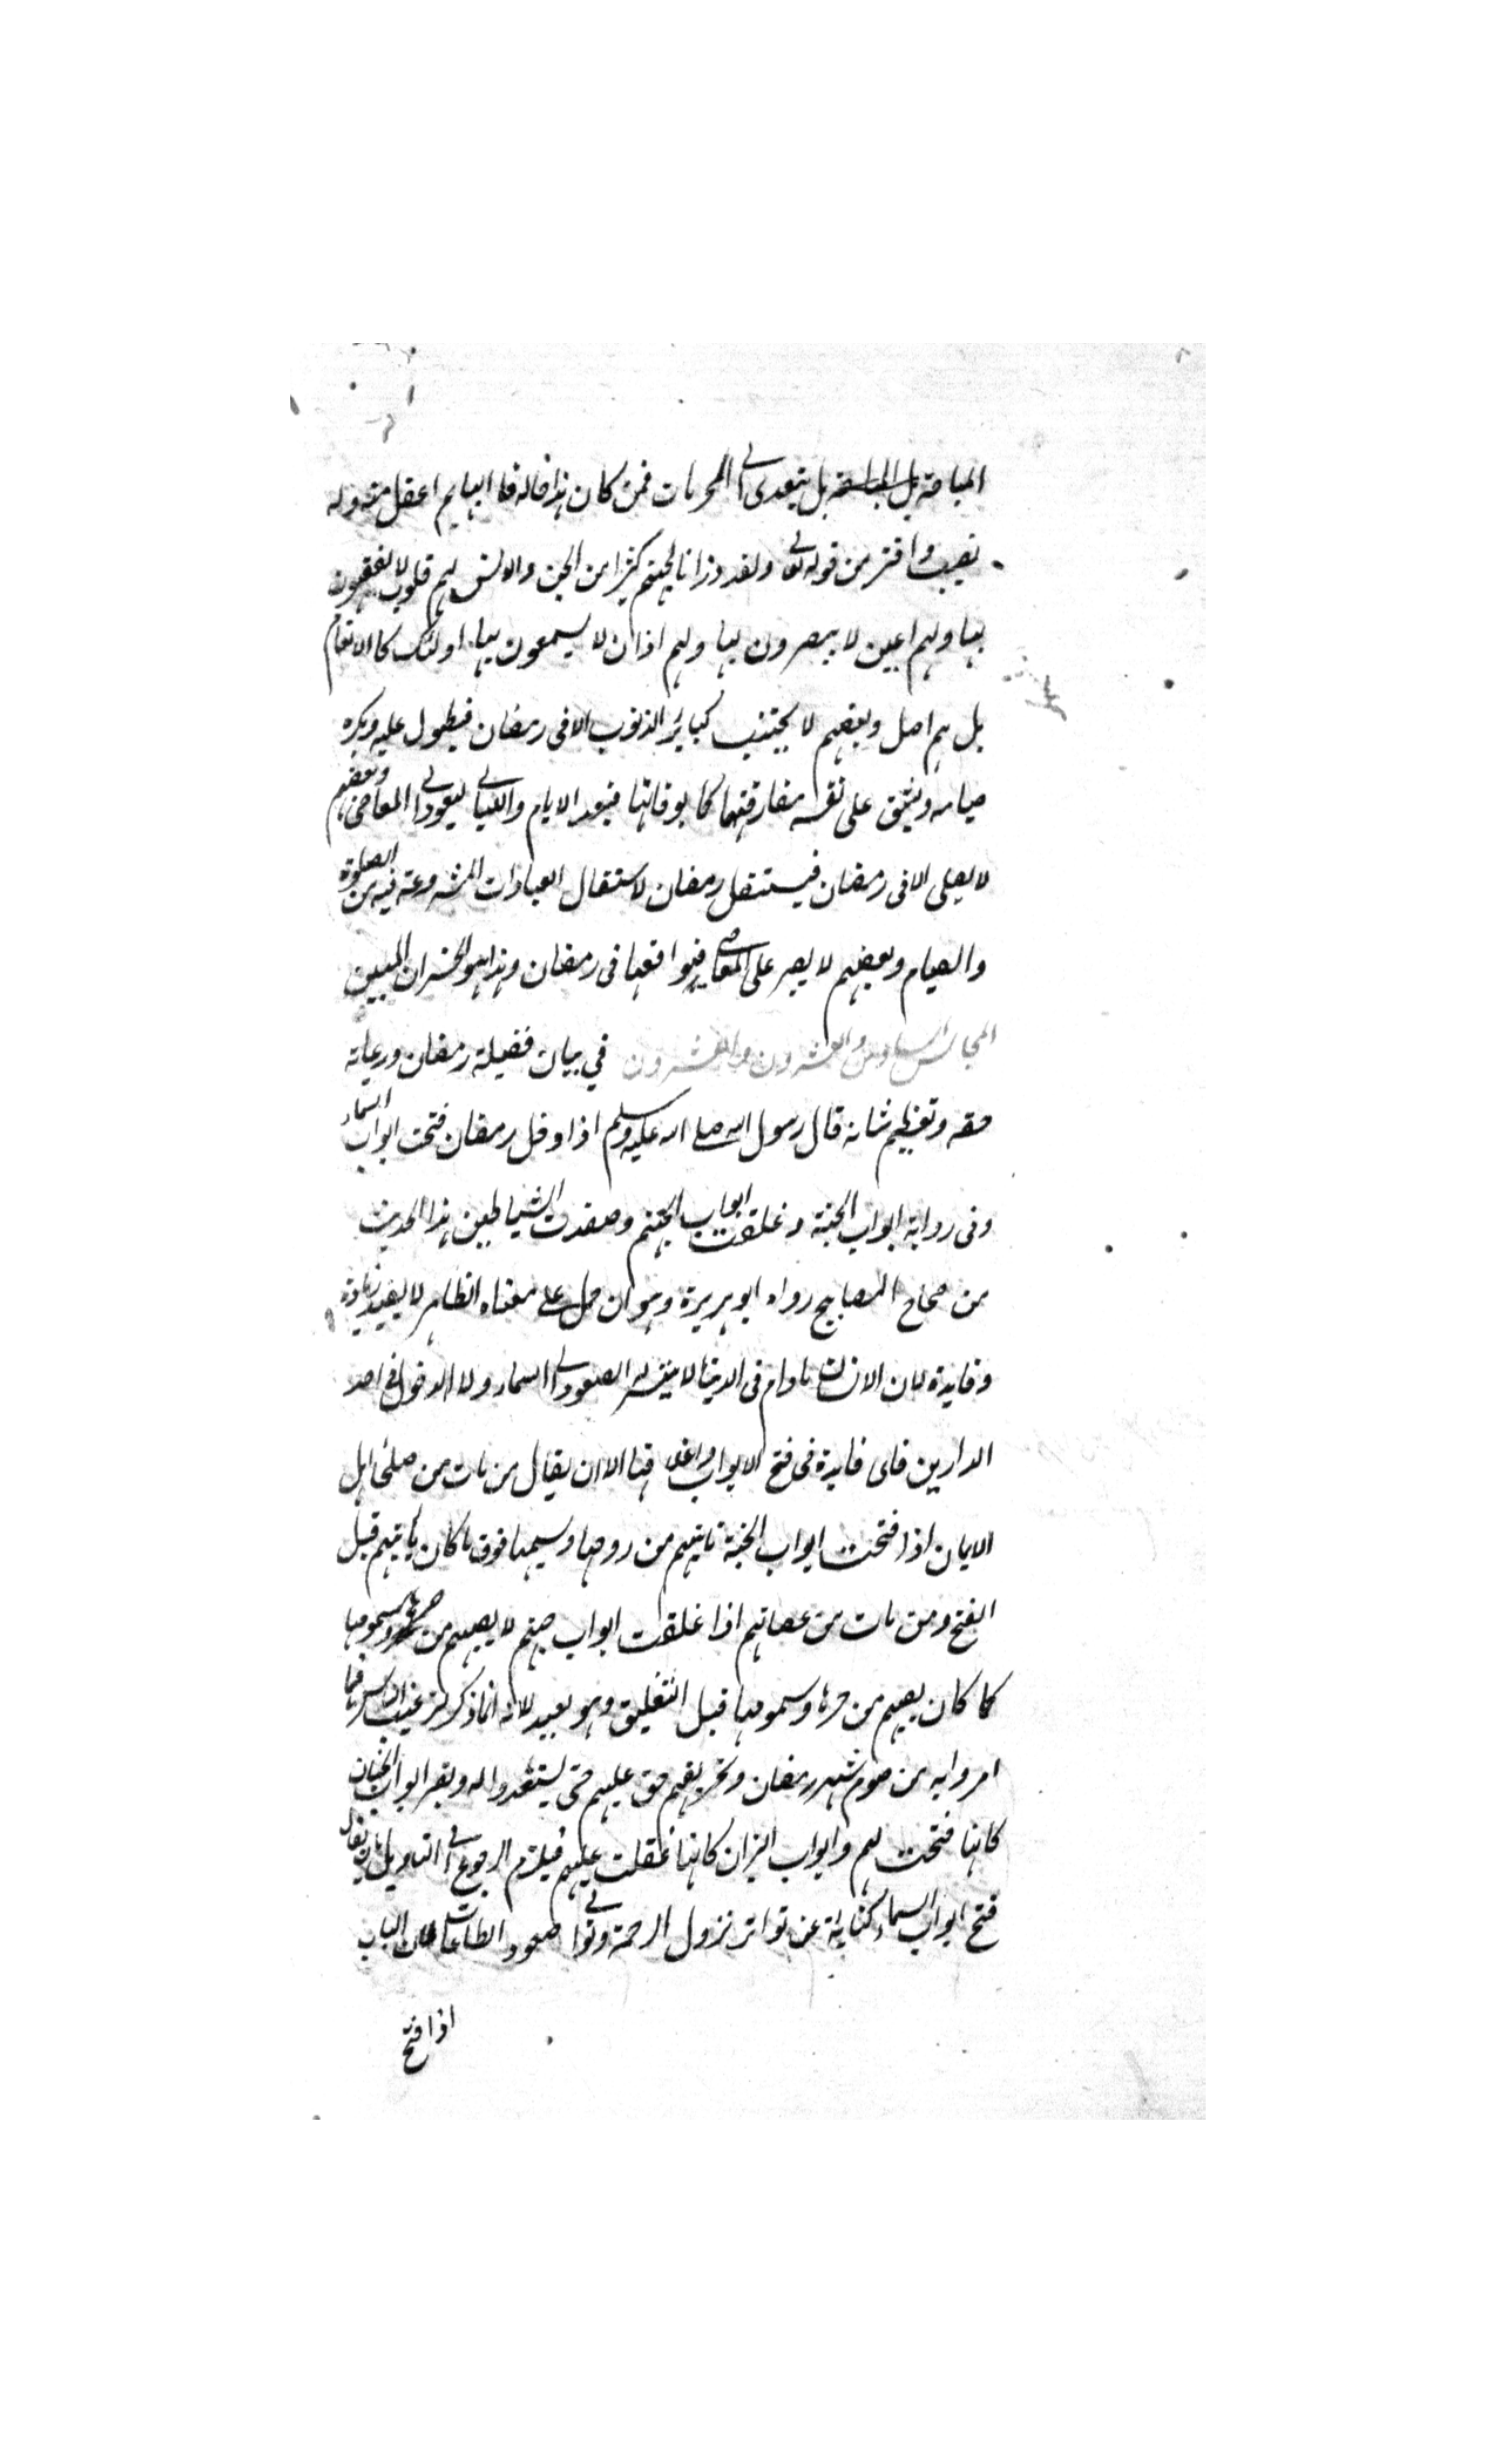 المباحة بل المباحة بل يتعدى الى المحرمات فمن كان هذا حاله فا البهايم اعقل منه وله
نصيب وافر من قوله تعالى ولقد ذرانا لجهنم كثيرا من الجن والانس لهم قلوب لا يفقهون
بها ولهم اعين لا يبصرون بها ولهم اذان لا يسمعون بها اولئك كالانعام
بل هم اضل وبعضهم لا يجتنب كباير الذنوب الا في رمضان فيطول عليه ويكره
صيامه ويشق على نفسه مفارقتها لما لوفاتها فيعد الايام والليالي ليعود الى المعاصي وبعضهم
لا يصلي الا في رمضان فيستثقل رمضان لاستثقال العبادات المشروعة فيه من الصلوة
والصيام وبعضهم لا يصبر على المعاصي فيواقعها في رمضان وهذا هو الخسران المبين
المجالس السادس والعشرون والعشرون في بيان فضيلة رمضان ورعاية
حقه وتعظيم شانه قال رسول الله صلى الله عليه وسلم اذا دخل رمضان فتحت ابواب السماء
وفي رواية ابواب الجنة وغلقت ابواب الجهنم وصفدت الشياطين هذا الحديث
من صحاح المصابيح رواه ابو هريرة وهو ان حمل على معناه الظاهر لا يفيد زيادة
وفايدة لان الانسان مادام في الدنيا لا يتيسر له الصعود الى السماء ولا الدخول في احد
الدارين فاى فايدة في فتح الابواب واغلاقها الا ان يقال من مات من صلحا اهل
الايمان اذا فتحت ابواب الجنة تاتيهم من روحها ونسيمها فوق ما كان ياتيهم قبل
الفتح ومن مات من عصاتهم اذا غلقت ابواب جهنم لا يصيبهم من حرها وسمومها
كما كان يصيبهم من حرها وسمومها قبل التغليق وهو بعيد لانه انما ذكر ترغيب الناس فيما
امروا به من صوم شهر رمضان وتحريضهم حق عليهم حتى يستعدوا له وبقر ابواب الجنان
كانها فتحت لهم وابواب النيران كانها غلقت عليهم فيلزم الرجوع الى التاويل بان يقال
فتح ابواب السماء كناية عن تواتر نزول الرحمة وتوالى صعود الطاعات لان الباب
اذا فتح